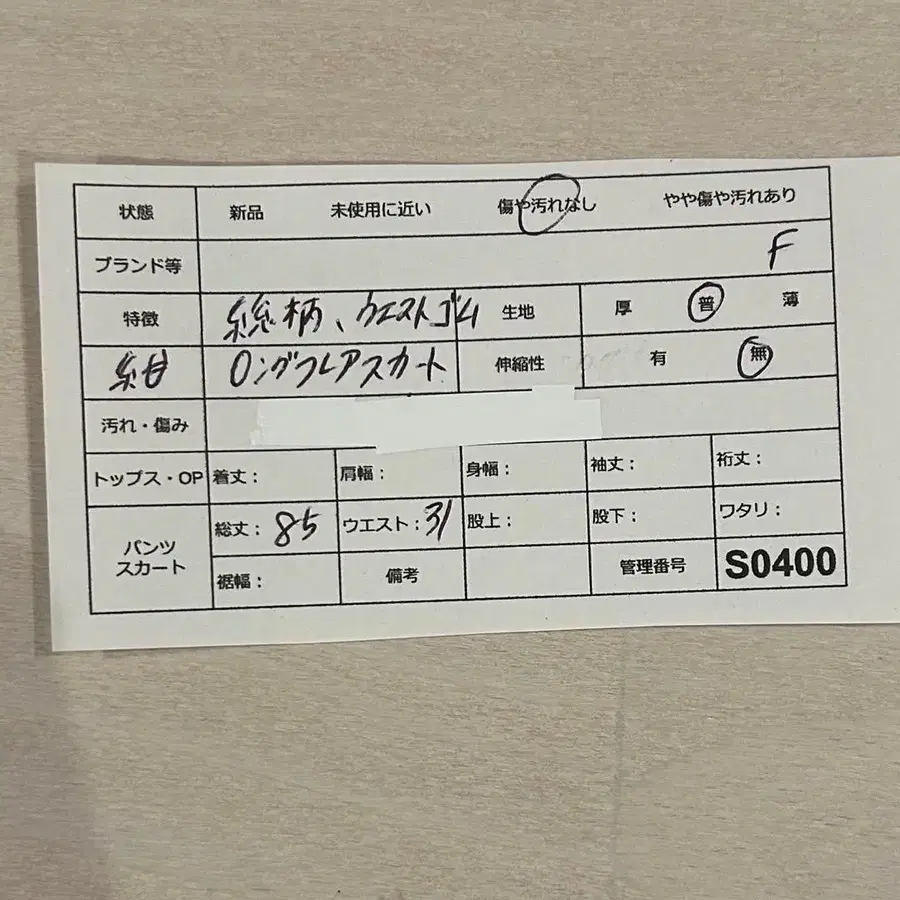 状態 新品 未使用に近い 傷や汚れなし やや傷や汚れあり
ブランド等 F
特徴 総柄、ウエストゴム 生地 厚 普 薄
紺 ロングフレアスカート 伸縮性 有 無
汚れ・傷み
トップス・OP 着丈: 肩幅: 身幅: 袖丈: 裄丈:
パンツ スカート 総丈: 85 ウエスト: 31 股上: 股下: ワタリ:
裾幅: 備考 管理番号 S0400